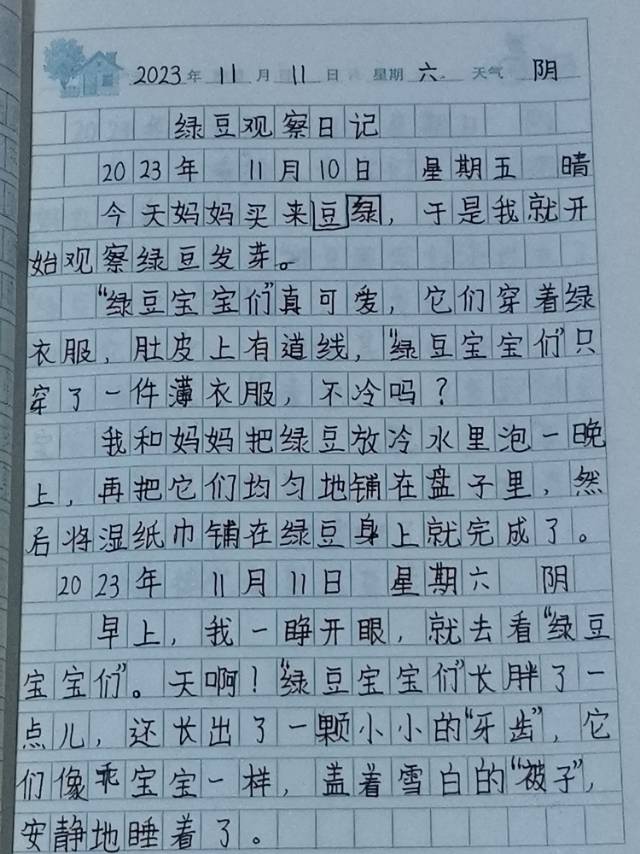 2023年 11月 11日 星期 六 天气 阴
绿豆观察日记
2023年 11月10日 星期五 晴
今天妈妈买来豆绿，于是我就开
始观察绿豆发芽。
“绿豆宝宝们”真可爱，它们穿着绿
衣服，肚皮上有道线，“绿豆宝宝们”只
穿了一件薄衣服，不冷吗？
我和妈妈把绿豆放冷水里泡一晚
上，再把它们均匀地铺在盘子里，然
后将湿纸巾铺在绿豆身上就完成了。
2023年 11月11日 星期六 阴
早上，我一睁开眼，就去看“绿豆
宝宝们”。天啊！“绿豆宝宝们”长胖了一
点儿，还长出了一颗小小的“牙齿”，它
们像乖宝宝一样，盖着雪白的“被子”，
安静地睡着了。